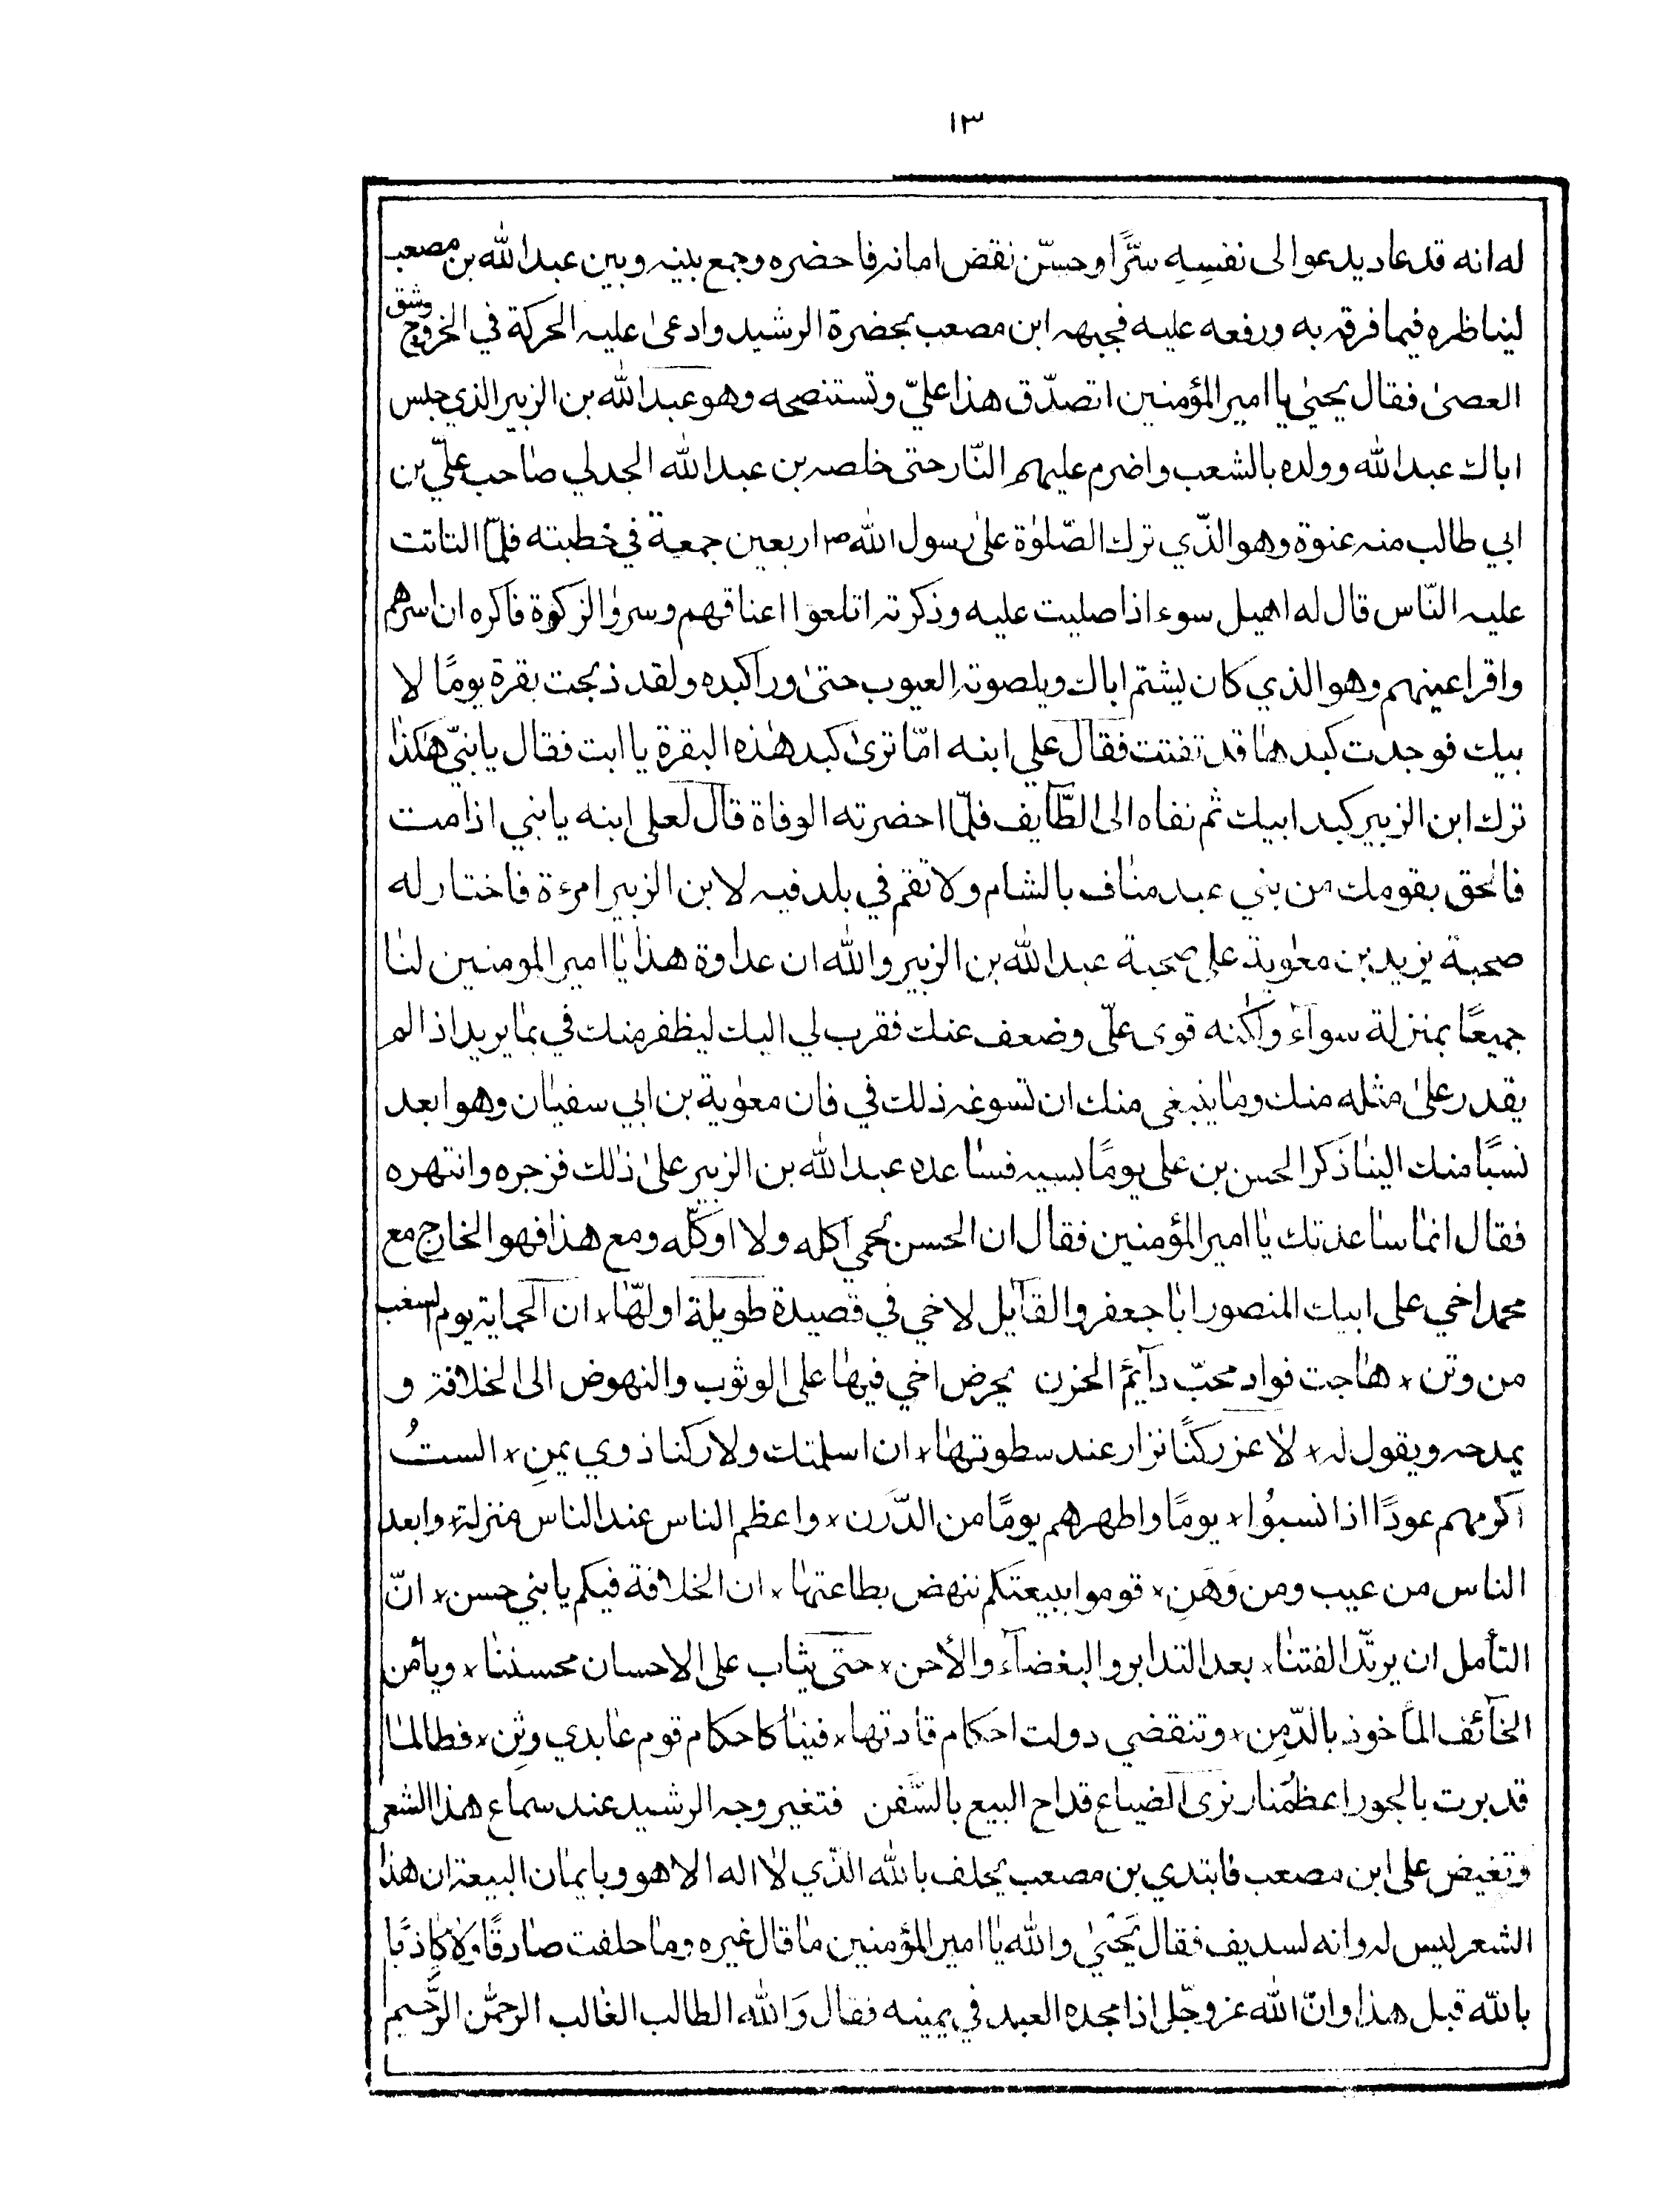 ١٣
له انه قد عاد يدعوا لى نفسِهِ سّرًا وحسّن نقض امانه فاحضره وجمع بينه وبين عبد الله بن مصعب
ليناظره فيما فرقه به ورفعه عليه فجبهه ابن مصعب بحضرة الرشيد وادعىٰ عليه الحركة في الخروج وشق
العصىٰ فقال يحيىٰ يا امير المؤمنين اتصدّق هذا عليّ وتستنصحه وهو عبد الله بن الزبير الذي جلس
اباك عبد الله وولده بالشعب واضرم عليهم النّار حتى خلصه بن عبد الله الجدلي صاحب علّي بن
ابي طالب منه عنوة وهو الذّي ترك الصّلوٰة علىٰ رسول الله ص اربعين جمعة في خطبته فلمّا التاتت
عليه النّاس قال له اهيل سوء اذا صليت عليه وذكرته اتلعوا اعناقهم وسروا لزكوة فاكره ان اسرهم
واقر اعينهم وهو الذي كان يشتم اباك ويلصوته العيوب حتىٰ ورا كبده ولقد ذبحت بقرة يومًا لا
بيك فوجدت كبدها قد تفتت فقال علي ابنه امّا ترىٰ كبد هٰذه البقرة يا ابت فقال يا بنيّ هٰكذا
ترك ابن الزبير كبد ابيك ثم نفاه الى الطّآيف فلمّا احضرته الوفاة قال لعلى ابنه يا بني اذا مت
فالحق بقومك من بني عبد مناف بالشام ولا تقم في بلد فيه لا بن الزبير امرءة فاختار له
صحبة يزيد بن معٰوية على صحبة عبد الله بن الزبير والله ان عداوة هذا يا امير المومنين لنا
جميعًا بمنزلة سوآء ولٰكنه قوى علّى وضعف عنك فقرب لي اليك ليظفر منك في بما يريد اذا لم
يقدر علىٰ مثله منك وما ينبغى منك ان تسوغه ذلك في فان معٰوية بن ابي سفيان وهو ابعد
نسبًا منك الينا ذكر الحسن بن على يومًا بسبه فساعده عبد الله بن الزبير علىٰ ذٰلك فزجره وانتهره
فقال انما ساعدتك يا امير المؤمنين فقال ان الحسن لحمي آكله ولا اوكّله ومع هذا فهو الخارج مع
محمد اخي على ابيك المنصور ابا جعفر والقآيل لاخي في قصيدة طويلة اولها × ان الحماية يوم الشعب
من وثن × هاجت فواد محبّ دآئم الحزن يحرض اخي فيها على الوثوب والنهوض الى الخلافة و
يمدحه ويقول له × لا عز ركنًا نزار عند سطوتها × ان اسلمتك ولا ركنا ذوي يمنِ × الستُ
اكرمهم عودًا اذا نسبُوا × يومًا واطهرهم يومًا من الدّرن × واعظم الناس عند الناس منزلة × وابعد
الناس من عيب ومن وَهَنِ × قوموا ببيعتكم ننهض بطاعتها × ان الخلافة فيكم يا بني حسن × انّ
التأمل ان يرتّد الفتنا × بعد التدابر والبغضآء والأحن × حتى يثاب على الاحسان محسننا × ويأمن
الخآئف المأخوذ بالدّمِن × وتنقضي دولت احكام قادتها × فينا كاحكام قوم عابدي وثِن × فطالما
قد برت بالجور اعظمُنا × نرى الضياع قداح البيع بالسّفن فتغير وجه الرشيد عند سماع هذا الشعر
وتغيض على ابن مصعب فابتدي بن مصعب يحلف بالله الذّي لا اله الا هو وبايمان البيعة ان هذا
الشعر ليس له وانه لسديف فقال يَحْيىٰ والله يا امير المؤمنين ما قال غيره وما حلفت صادقًا ولا كاذبًا
بالله قبل هذا وانّ الله عز وجّل اذا مجده العبد في يمينه فقال وَالله الطالب الغالب الرحمٰن الرَّحيم